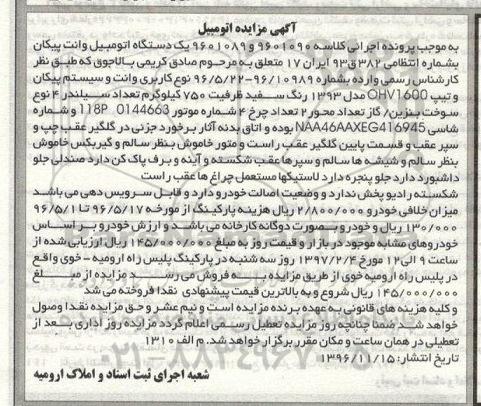 آگهی مزایده اتومبیل
به موجب پرونده اجرائی کلاسه ۹۶۰۱۰۹۰ و ۹۶۰۱۰۸۹ یک دستگاه اتومبیل وانت پیکان
بشماره انتظامی ۳۸۲ ق ۹۳ ایران ۱۷ متعلق به مرحوم صادق کریمی بالاجوق که طبق نظر
کارشناس رسمی وارده بشماره ۹۶/۱۰۹۸۹-۹۶/۵/۲۲ نوع کاربری وانت و سیستم پیکان
و تیپ OHV1600 مدل ۱۳۹۳ رنگ سفید ظرفیت ۷۵۰ کیلوگرم تعداد سیلندر ۴ نوع
سوخت بنزین/ گاز تعداد محور ۲ تعداد چرخ ۴ شماره موتور 118P 0144663 و شماره
شاسی NAA46AAXEG416945 بوده و اتاق بدنه آثار برخورد جزئی در گلگیر عقب چپ و
سپر عقب و قسمت پایین گلگیر عقب راست و متور خاموش بنظر سالم و گیربکس خاموش
بنظر سالم و شیشه ها سالم و سپرها عقب شکسته و آینه و برف پاک کن دارد صندلی جلو
داشبورد دارد جلو پنجره دارد لاستیکها مستعمل چراغ ها عقب راست
شکسته رادیو پخش ندارد و وضعیت اصالت خودرو دارد و قابل سرویس دهی می باشد
میزان خلافی خودرو ۲/۸۰۰/۰۰۰ ریال هزینه پارکینگ از مورخه ۹۶/۵/۱۷ تا ۹۶/۵/۱
۱۳۰/۰۰۰ ریال و خودرو بصورت دوگانه کارخانه می باشد و ارزش خودرو بر اساس
خودروهای مشابه موجود در بازار و قیمت روز به مبلغ ۱۴۵/۰۰۰/۰۰۰ ریال ارزیابی شده از
ساعت ۹ الی ۱۲ مورخ ۱۳۹۷/۲/۴ روز سه شنبه در پارکینگ پلیس راه ارومیه - خوی واقع
در پلیس راه ارومیه خوی از طریق مزایده به فروش می رسد مزایده از مبلغ
۱۴۵/۰۰۰/۰۰۰ ریال شروع و به بالاترین قیمت پیشنهادی نقدا فروخته می شد
و کلیه هزینه های قانونی به عهده برنده مزایده است و نیم عشر و حق مزایده نقدا وصول
خواهد شد ضمنا چنانچه روز مزایده تعطیل رسمی اعلام گردد مزایده روز اداری بعد از
تعطیلی در همان ساعت و مکان مقرر برگزار خواهد شد. م الف ۱۳۱۰
تاریخ انتشار: ۱۳۹۶/۱۱/۱۵
شعبه اجرای ثبت اسناد و املاک ارومیه
۰۲۱-۸۸۳۴۹۶۷۰-۵